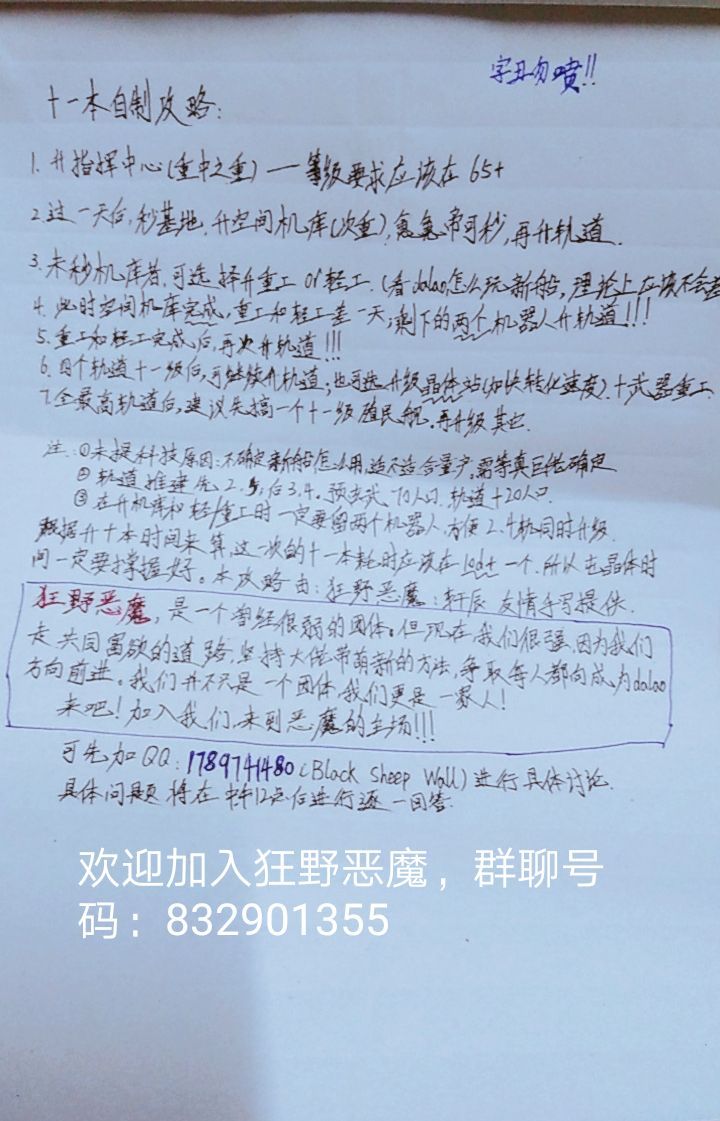 字丑勿喷!!
十一本自制攻略:
1. 升指挥中心(重中之重) — 等级要求应该在65+
2.这一天后,秒基地,升空间机库(次重),氪氪帝可秒,再升轨道.
3.未秒机库者,可选择升重工 or轻工.(看dalao怎么玩新船,理论上应该不会差
4. 此时空间机库完成,重工和轻工差一天,剩下的两个机器人升轨道!!!
5. 重工和轻工完成后,再次升轨道!!!
6. 四个轨道十一级后,可继续升轨道;也可选升级晶体站(加快转化速度).十武器重工
7.全最高轨道后,建议先搞一个十一级殖民舰.再升级其它.
注:①未提科技原因:不确定新船怎么用,适不适合量产,需等真巨佬确定
②轨道推建先2.5,后3.4。预卖式70人口.轨道+20人口.
③在升机库和轻/重工时一定要留两个机器人,方便2.4轨同时升级.
根据升十本时间来算,这一次的十一本耗时应该在10d+一个.所以屯晶体时
间一定要掌握好。本攻略由:狂野恶魔:轩辰 友情手写提供.
狂野恶魔,是一个曾经很弱的团体。但现在我们很强,因为我们
走共同富欲的道路,坚持大佬带萌新的方法,争取每人都向成为dalao
方向前进。我们并不只是一个团体,我们更是一家人!
来吧!加入我们,来到恶魔的主场!!!
可先加QQ:1789741480(Black Sheep Wall)进行具体讨论.
具体问题将在中午12点后进行逐一回答.
欢迎加入狂野恶魔,群聊号
码:832901355